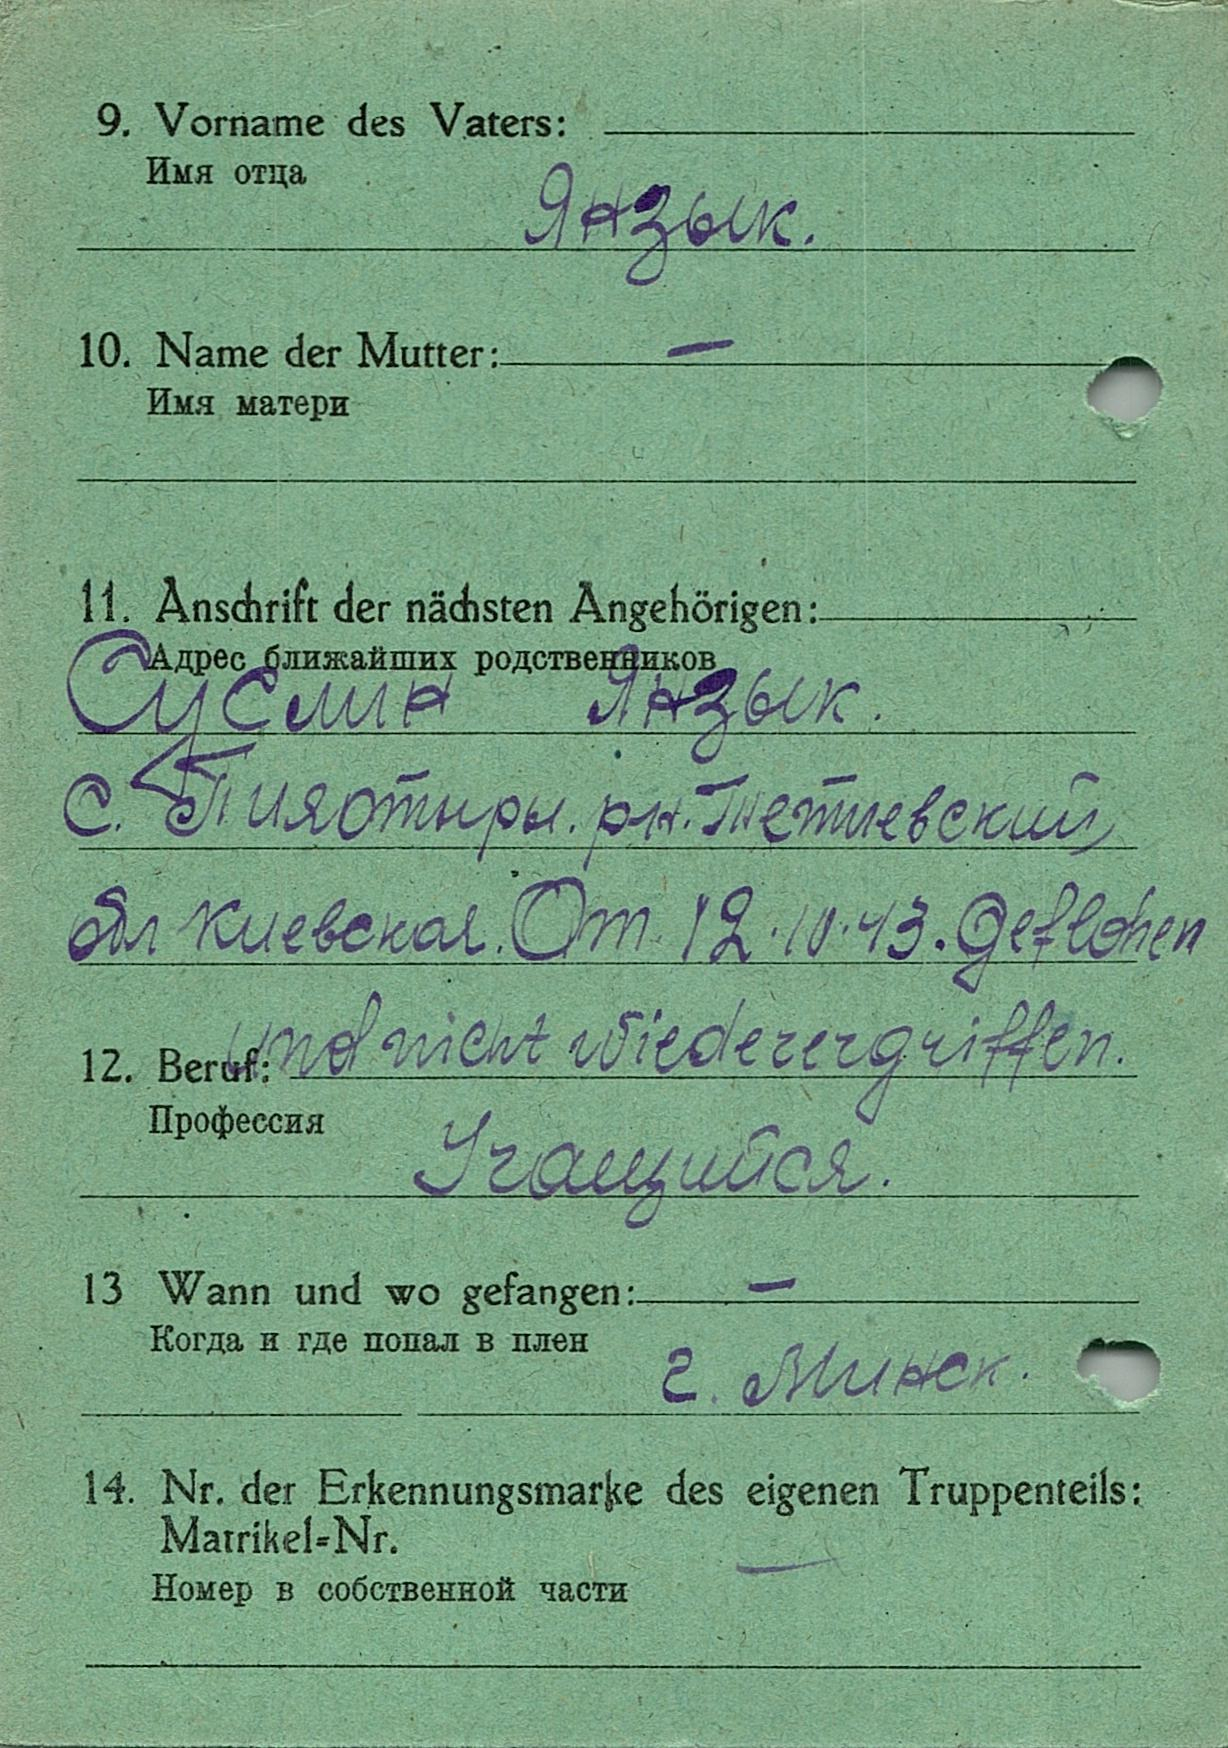 9. Vorname des Vaters:
Имя отца
Янзык.
10. Name der Mutter: —
Имя матери
11. Anschrift der nächsten Angehörigen:
Адрес ближайших родственников
Суслин Янзык.
с. Пиятыры. рн. Тетиевский
обл Киевская. От. 12.10.43. geflohen
und nicht wiederergriffen.
12. Beruf:
Профессия
Учащийся.
13 Wann und wo gefangen: —
Когда и где попал в плен
г. Минск.
14. Nr. der Erkennungsmarke des eigenen Truppenteils:
Matrikel=Nr. —
Номер в собственной части